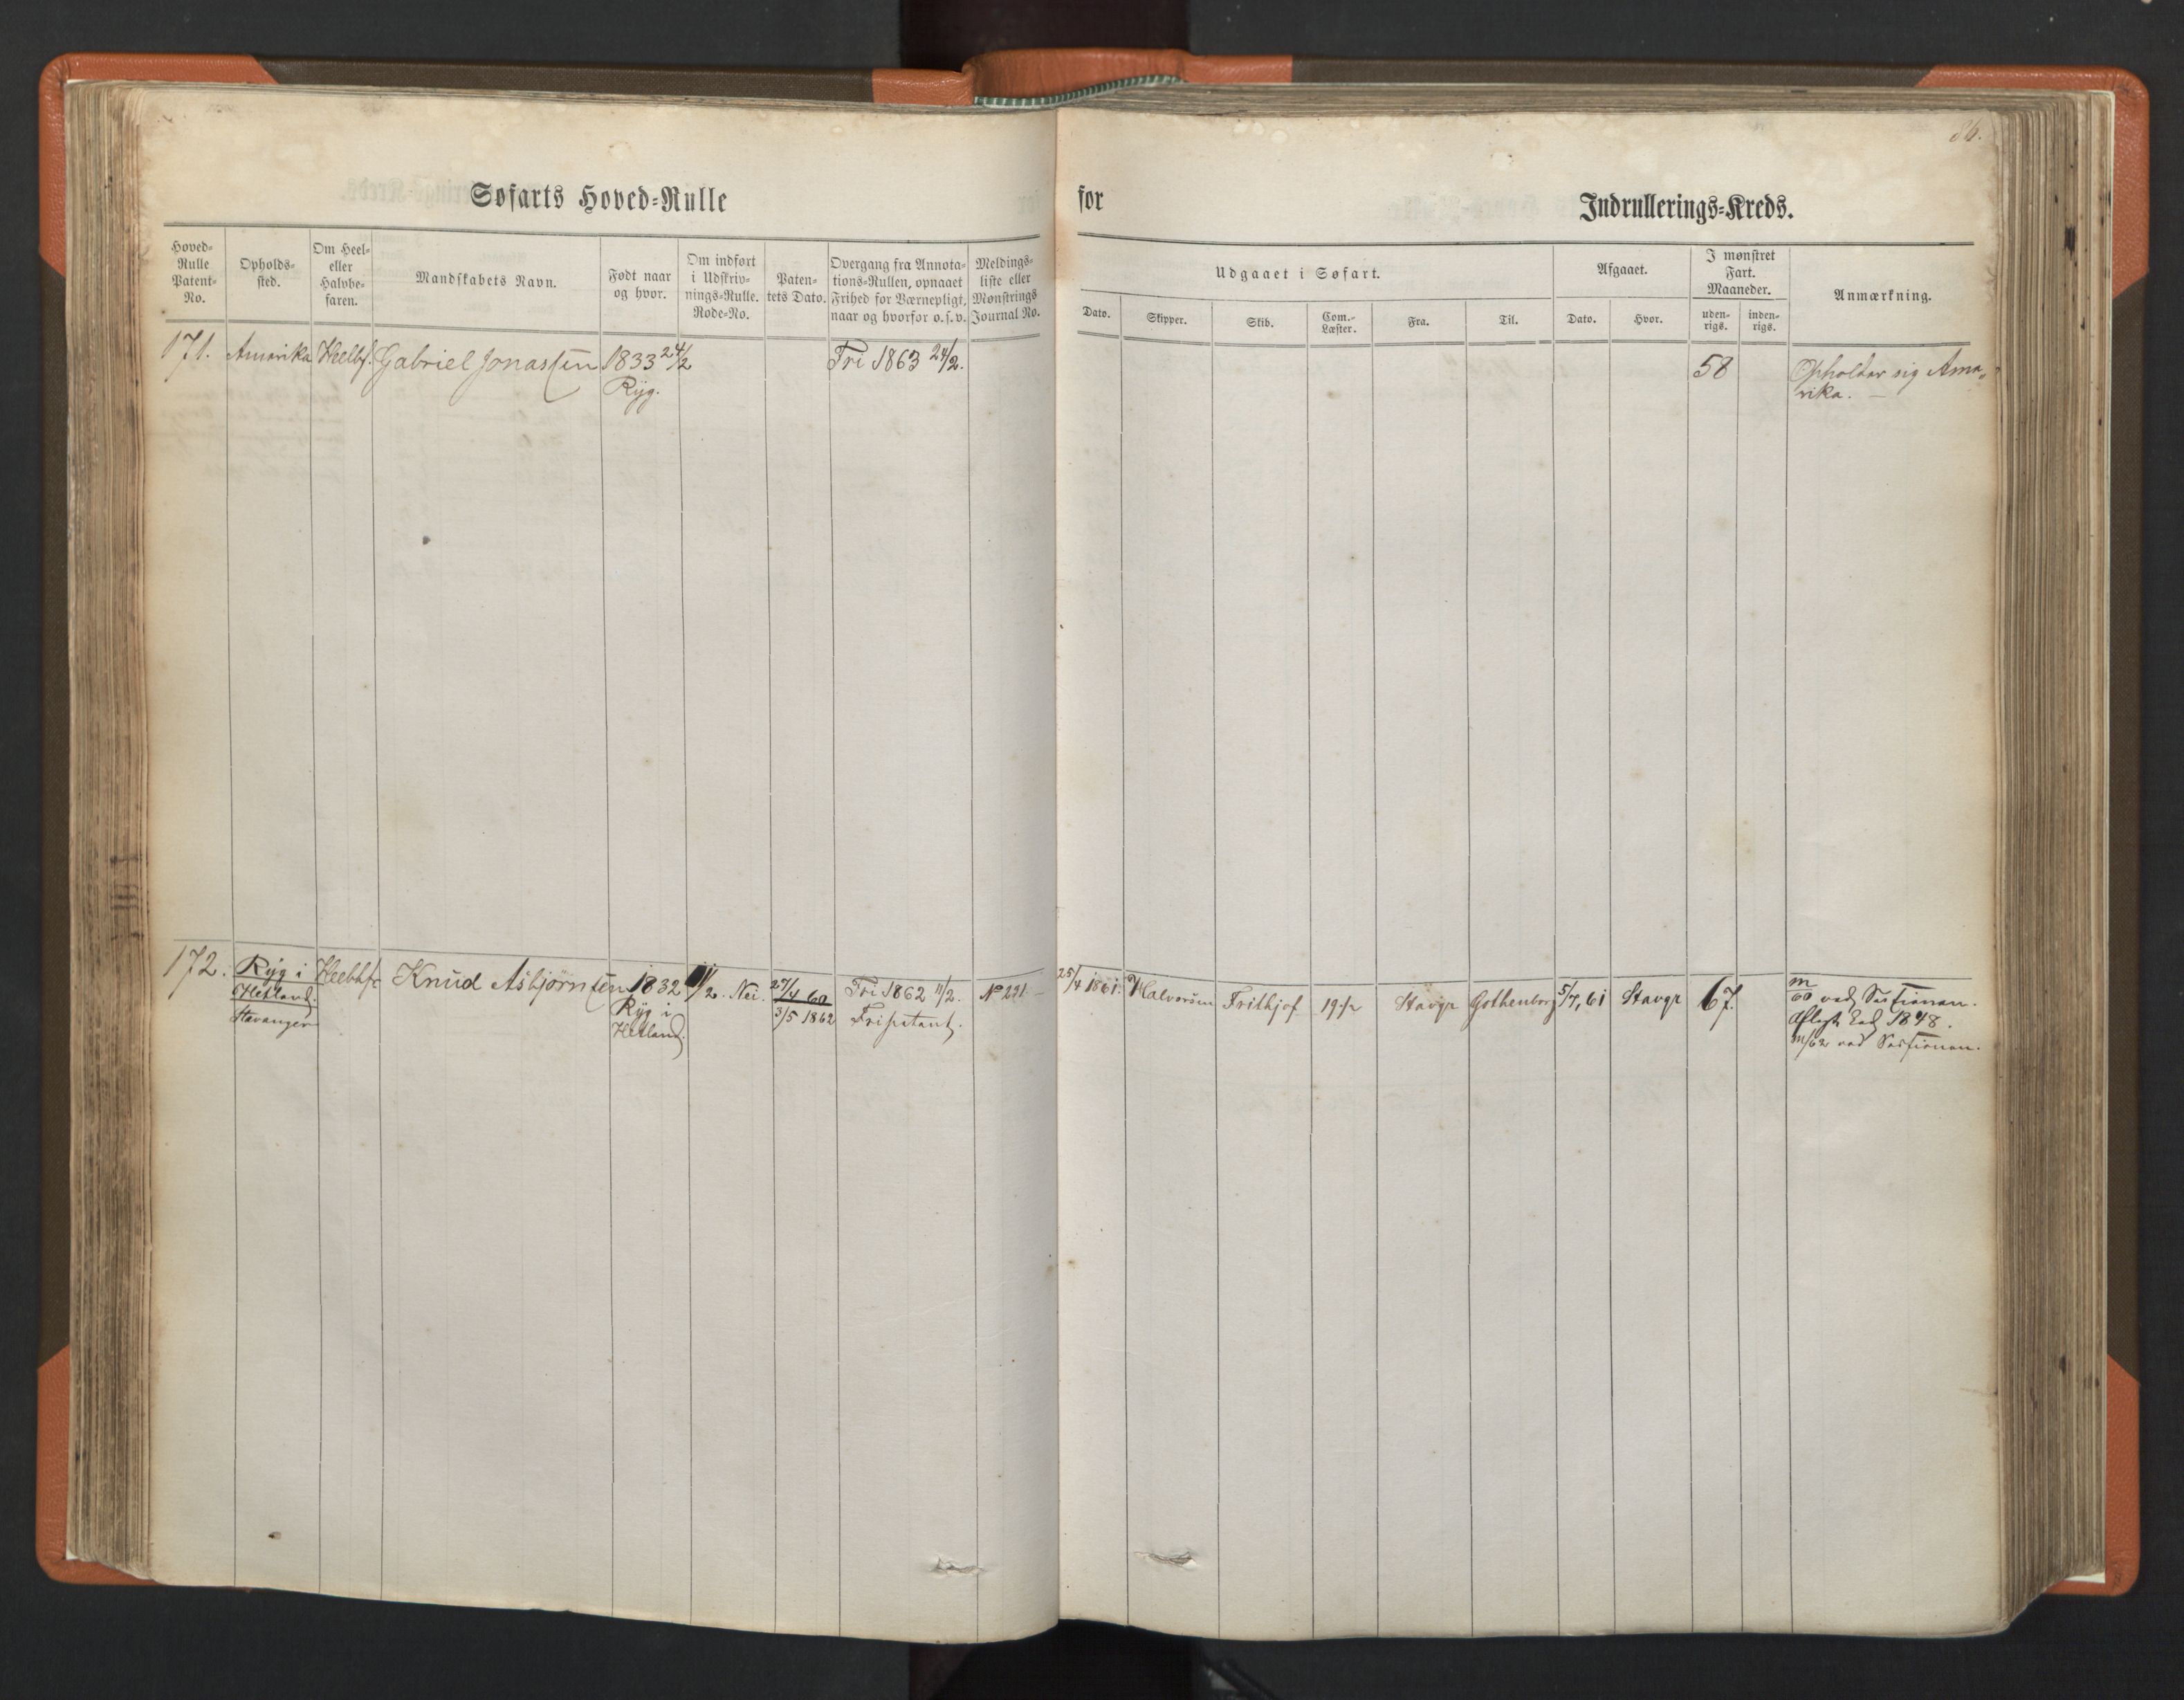 86.
Søfarts Hoved-Rulle for Indrullerings-Kreds.
Hoved-Rulle Patent-No.
Opholds-sted.
Om Heel- eller Halvbe-faren.
Mandskabets Navn.
Født naar og hvor.
Om indført i Udskriv-nings-Rulle. Rode-No.
Paten-tets Dato.
Overgang fra Annota-tions-Rullen, opnaaet Frihed for Værnepligt, naar og hvorfor o.s.v.
Meldings-liste eller Mønstrings Journal No.
Udgaaet i Søfart.
Dato.
Skipper.
Skib.
Com.-Læster.
Fra.
Til.
Afgaaet.
Dato.
Hvor.
I mønstret Fart. Maaneder.
uden-rigs.
inden-rigs.
Anmærkning.
171. Amerika Heelbf. Gabriel Jonassen 1833 24/2 Fri 1863 24/2. 58 Opholder sig Ame-
Ryg. rika. —
172. Ryg i Heelbf. Knud Asbjørnsen 1832 11/2. Nei. 27/4 60 Fri 1862 11/2. No 221 — 25/4 1861. Halvorsen Frithjof 19 1/2 Stavgr Gothenborg 5/7, 61 Stavgr 67. m/60 ved Sessionen.
Hetland. Ryg i 3/5 1862 Fripatent. Aflagt Eed 1848.
Stavanger Hetland. m/62 ved Sessionen.